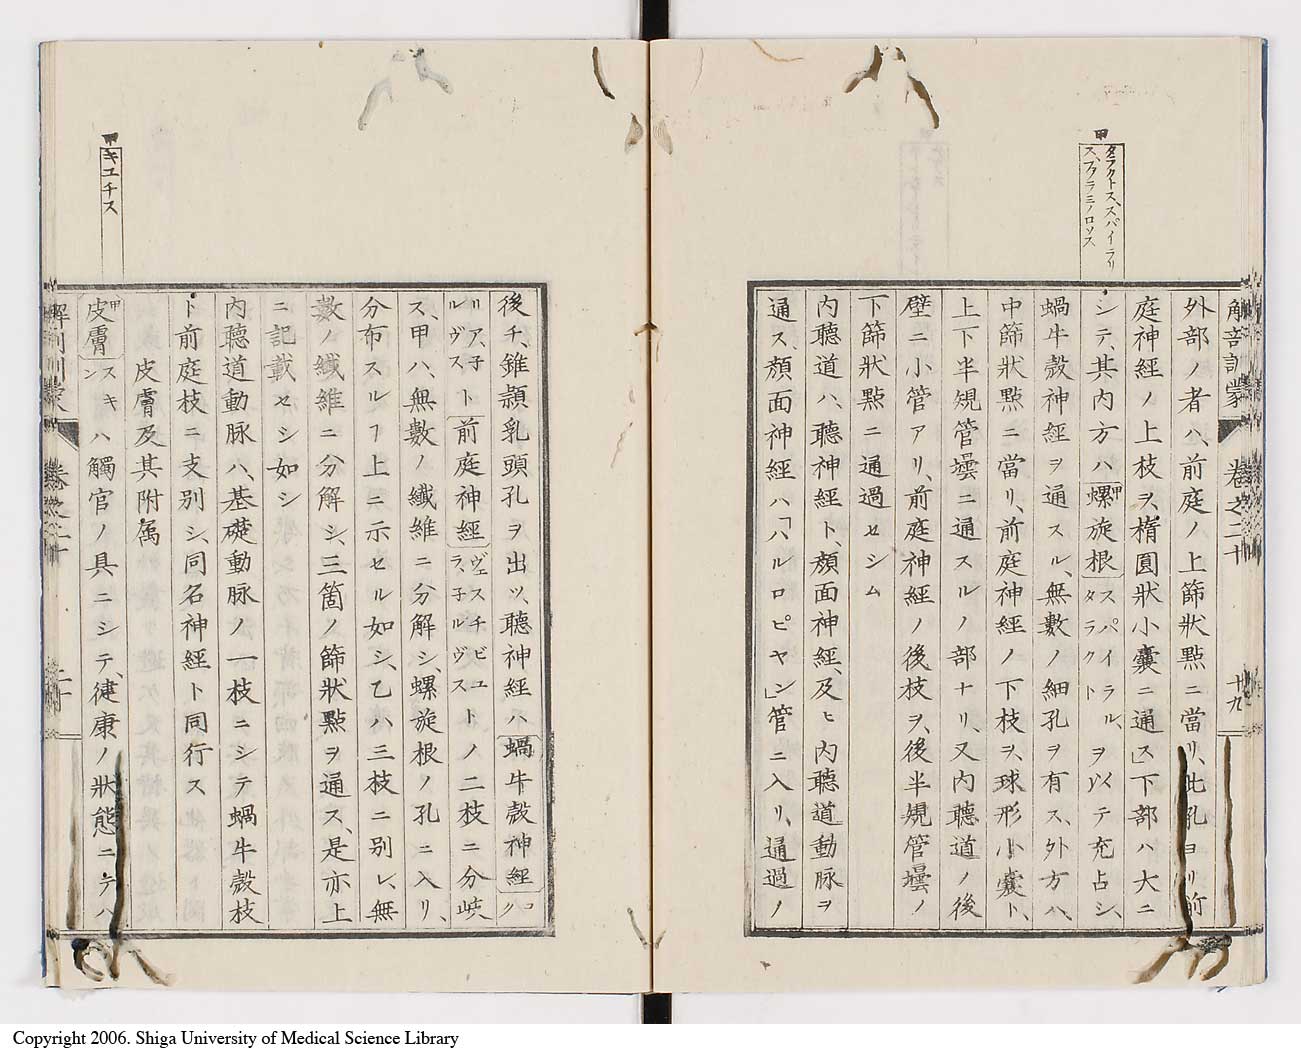 甲
タラクトス、スパイラリ
ス、フラミノロソス
解剖訓蒙
卷之二十
十九
外部ノ者ハ、前庭ノ上篩狀點ニ當リ、此孔ヨリ前
庭神經ノ上枝ヲ、楕圓狀小囊ニ通ス」下部ハ大ニ
シテ、其内方ハ螺旋根スパイラル、タラクトヲ以テ充占シ、
蝸牛殼神經ヲ通スル、無數ノ細孔ヲ有ス、外方ハ、
中篩狀點ニ當リ、前庭神經ノ下枝ヲ、球形小囊ト、
上下半規管壜ニ通スルノ部ナリ、又内聽道ノ後
壁ニ小管アリ、前庭神經ノ後枝ヲ、後半規管壜ノ
下篩狀點ニ通過セシム
内聽道ハ、聽神經ト、顏面神經、及ヒ内聽道動脉ヲ
通ス、顏面神經ハ「ハルロピヤン」管ニ入リ、通過ノ
後チ、錐顳乳頭孔ヲ出ツ、聽神經ハ蝸牛殼神經コク
リア、子ルヴスト前庭神經ヴェスチビユラ、子ルヴストノ二枝ニ分岐
ス、甲ハ、無數ノ纎維ニ分解シ、螺旋根ノ孔ニ入リ、
分布スルヿ上ニ示セル如シ、乙ハ三枝ニ別レ、無
數ノ纎維ニ分解シ、三箇ノ篩狀點ヲ通ス、是亦上
ニ記載セシ如シ
内聽道動脉ハ、基礎動脉ノ一枝ニシテ蝸牛殼枝
ト前庭枝ニ支別シ、同名神經ト同行ス
皮膚及其附属
甲皮膚スキンハ觸官ノ具ニシテ、健康ノ狀態ニテハ、
甲
キユチス
Copyright 2006. Shiga University of Medical Science Library